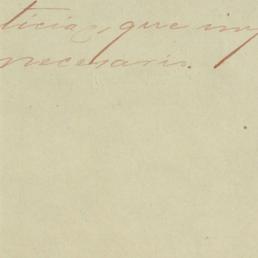 ticias, que im
necesario.